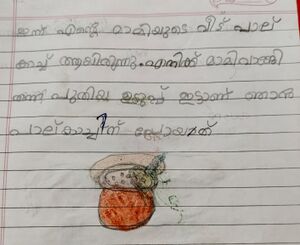 ഇന്ന് എന്റെ മാമിയുടെ വീട് പാല്
കാച്ച് ആയിരുന്നു. എനിക്ക് മാമിവാങ്ങി
തന്ന പുതിയ ഉടുപ്പ് ഇട്ടാണ് ഞാൻ
പാല് കാച്ചിന് പോയത്